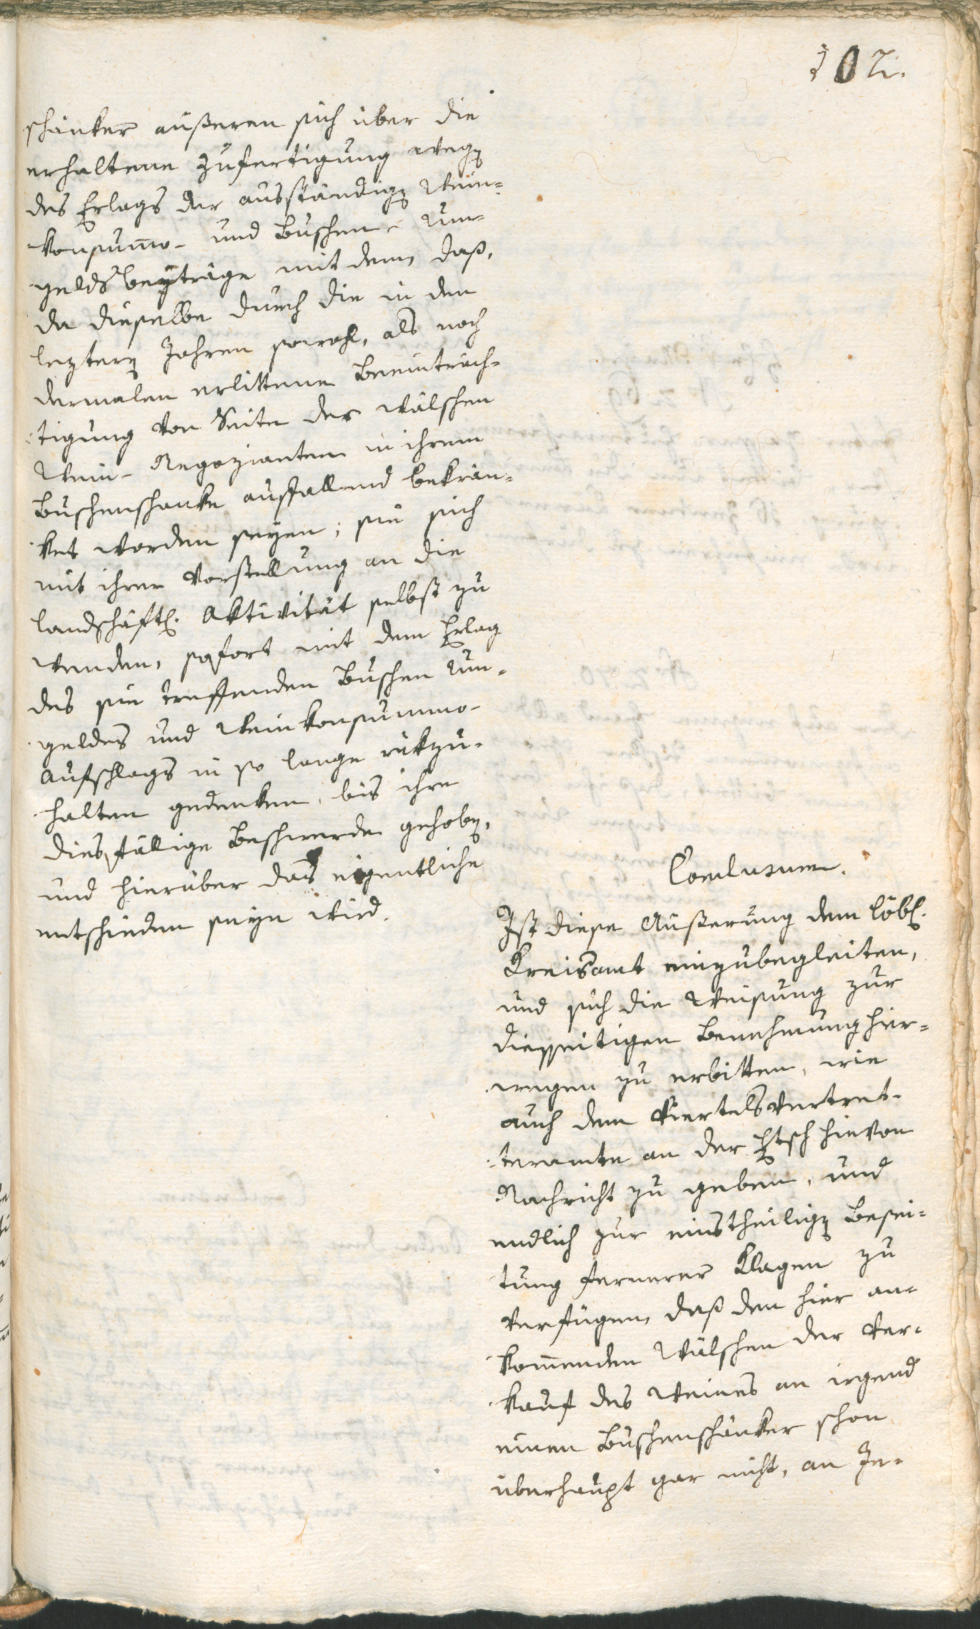 102.
schänker äußeren sich über die
erhaltene Zufertigung wegen
des Erlags der ausständigen Wein-
konsummo- und Buschen- Um-
gelds beyträge mit dem, daß,
da dieselbe durch die in den
leztern Jahren sowohl, als noch
dermalen erlittene Beeinträch-
tigung von Seite der wälschen
Wein- Negozianten in ihrem
Buschenschanke auffallend bekrän-
ket worden seyen; sie sich
mit ihrer Vorstellung an die
landschäftl. Aktivität selbst zu
wenden, sofort mit dem Erlag
des sie treffenden Buschen Um-
geldes und Weinkonsummo-
aufschlags in so lange rükzu-
halten gedenken, bis ihre
diesfällige Beschwerde gehoben,
und hierüber das eigentliche
entschieden seyn wird.
Conclusum.
Ist diese Äußerung dem löbl.
Kreisamt einzubegleiten,
und sich die Weisung zur
diesseitigen Benehmung hier-
wegen zu erbitten, wie
auch dem Viertelsvertret-
teramte an der Etsch hievon
Nachricht zu geben, und
endlich zur einstheiligen Besei-
tung fernerer Klagen zu
verfügen, daß den hier an-
kommenden Wälschen der Ver-
kauf des Weines an irgend
einen Buschenschänker schon
überhaupt gar nicht, an Je-